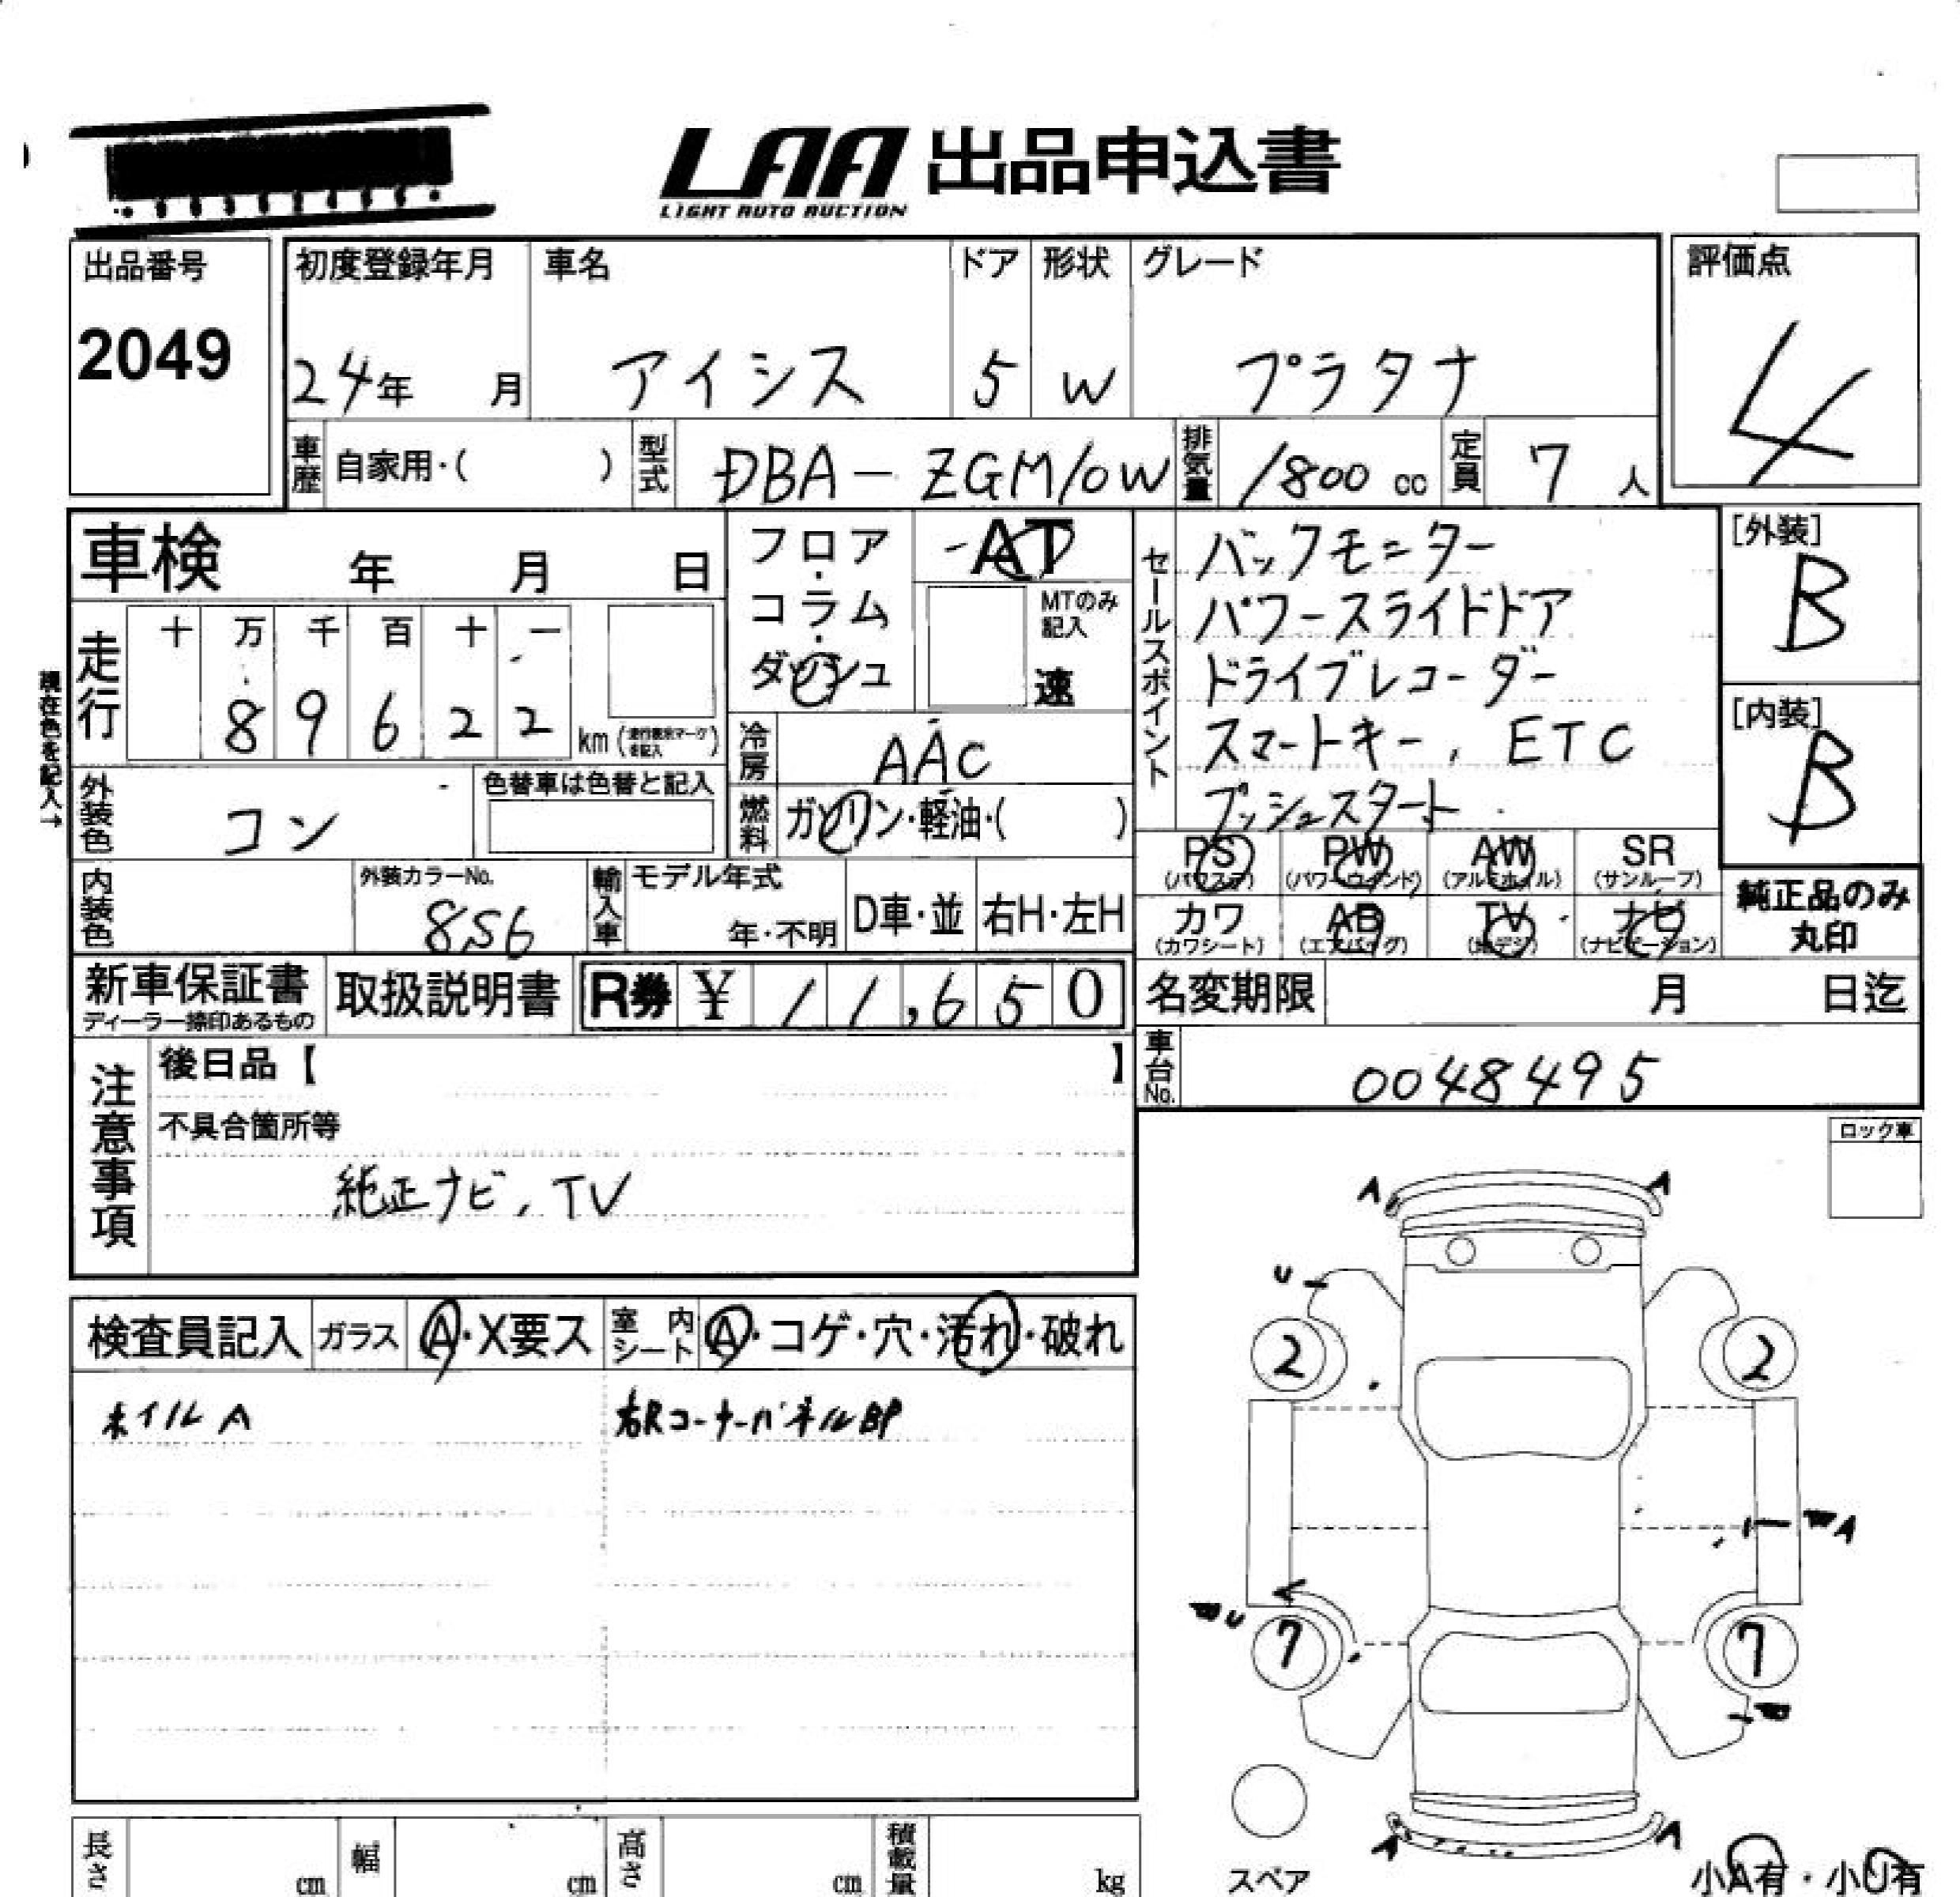 LAA 出品申込書
LIGHT AUTO AUCTION
出品番号
2049
初度登録年月 車名 ドア 形状 グレード
24年 月 アイシス 5 W プラタナ
評価点
4
車歴 自家用・( ) 型式 DBA-ZGM10W 排気量 1800 cc 定員 7 人
車検 年 月 日
フロア・コラム・ダッシュ
AT
MTのみ記入
速
セールスポイント
バックモニター
パワースライドドア
ドライブレコーダー
スマートキー, ETC
プッシュスタート
[外装]
B
[内装]
B
現在色を記入→
走行 十 万 千 百 十 一
8 9 6 2 2 km (走行表示マークを記入)
冷房 AAC
燃料 ガソリン・軽油・( )
外装色 コン 色替車は色替と記入
PS (パワステ) PW (パワーウインド) AW (アルミホイル) SR (サンルーフ)
カワ (カワシート) AB (エアバッグ) TV (地デジ) ナビ (ナビゲーション)
純正品のみ
丸印
内装色 外装カラーNo. 8S6 輸入車 モデル年式 年・不明 D車・並 右H・左H
新車保証書
ディーラー捺印あるもの
取扱説明書 R券 ¥ 11,650
名変期限 月 日迄
車台No. 0048495
注意事項
後日品【 】
不具合箇所等
純正ナビ, TV
ロック車
検査員記入 ガラス A・X要ス 室内シート A・コゲ・穴・汚れ・破れ
ホイルA 右RコーナーパネルBP
A A
U
2 2
A
U
7 7
A A
スペア
小A有・小U有
長さ cm 幅 cm 高さ cm 積載量 kg